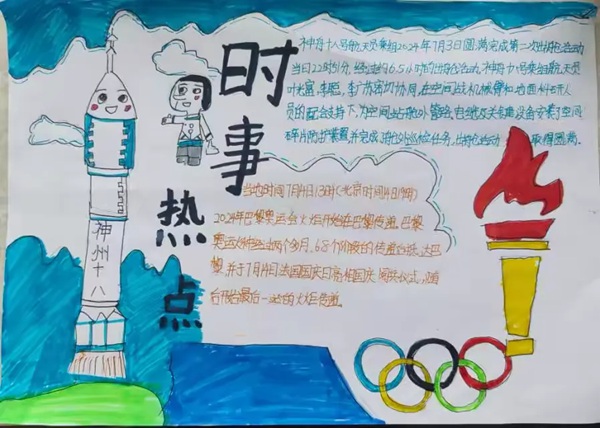 时事热点
神州十八
神舟十八号航天员乘组2024年7月3日圆满完成第二次出舱活动
当日22时51分,经过约6.5小时的出舱活动,神舟十八号乘组航天员
叶光富、李聪、李广苏密切协同,在空间站机械臂和地面科研人
员的配合支持下,为空间站舱外管路、电缆及关键设备安装了空间
碎片防护装置,并完成舱外巡检任务,出舱活动取得圆满。
当地时间7月14日13时(北京时间14日19时)
2024年巴黎奥运会火炬开始在巴黎传递,巴黎
奥运火炬经过两个多月、68个阶段的传递抵达巴
黎,并于7月14日法国国庆日亮相国庆阅兵仪式,
后开始最后一站的火炬传递。